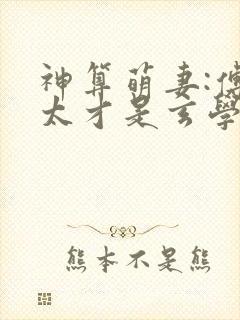 神算萌妻:傅
太才是玄學
熊本不是熊